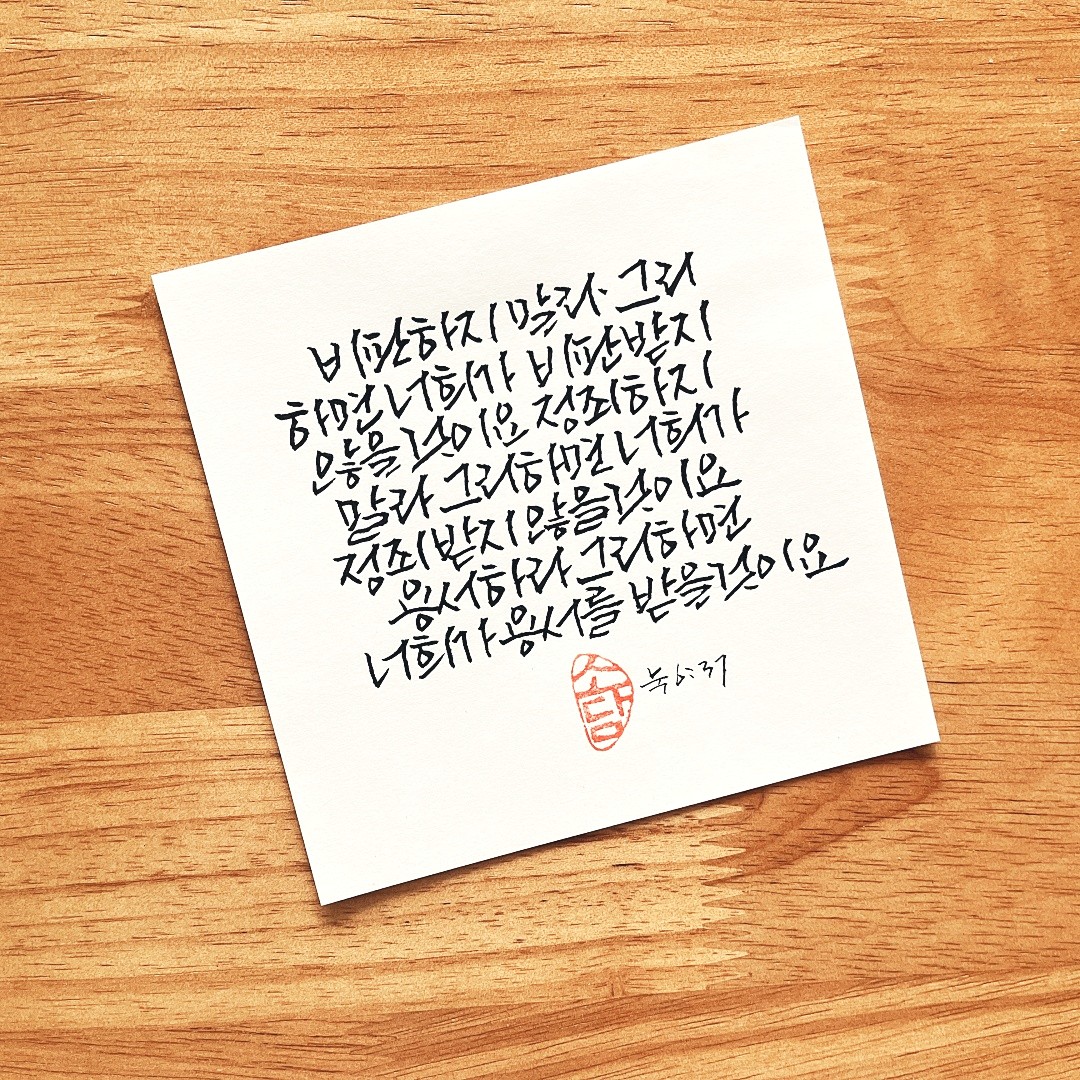 비판하지 말라 그리
하면 너희가 비판받지
않을 것이요 정죄하지
말라 그리하면 너희가
정죄받지 않을것이요
용서하라 그리하면
너희가 용서를 받을것이요
눅 6:37
소담